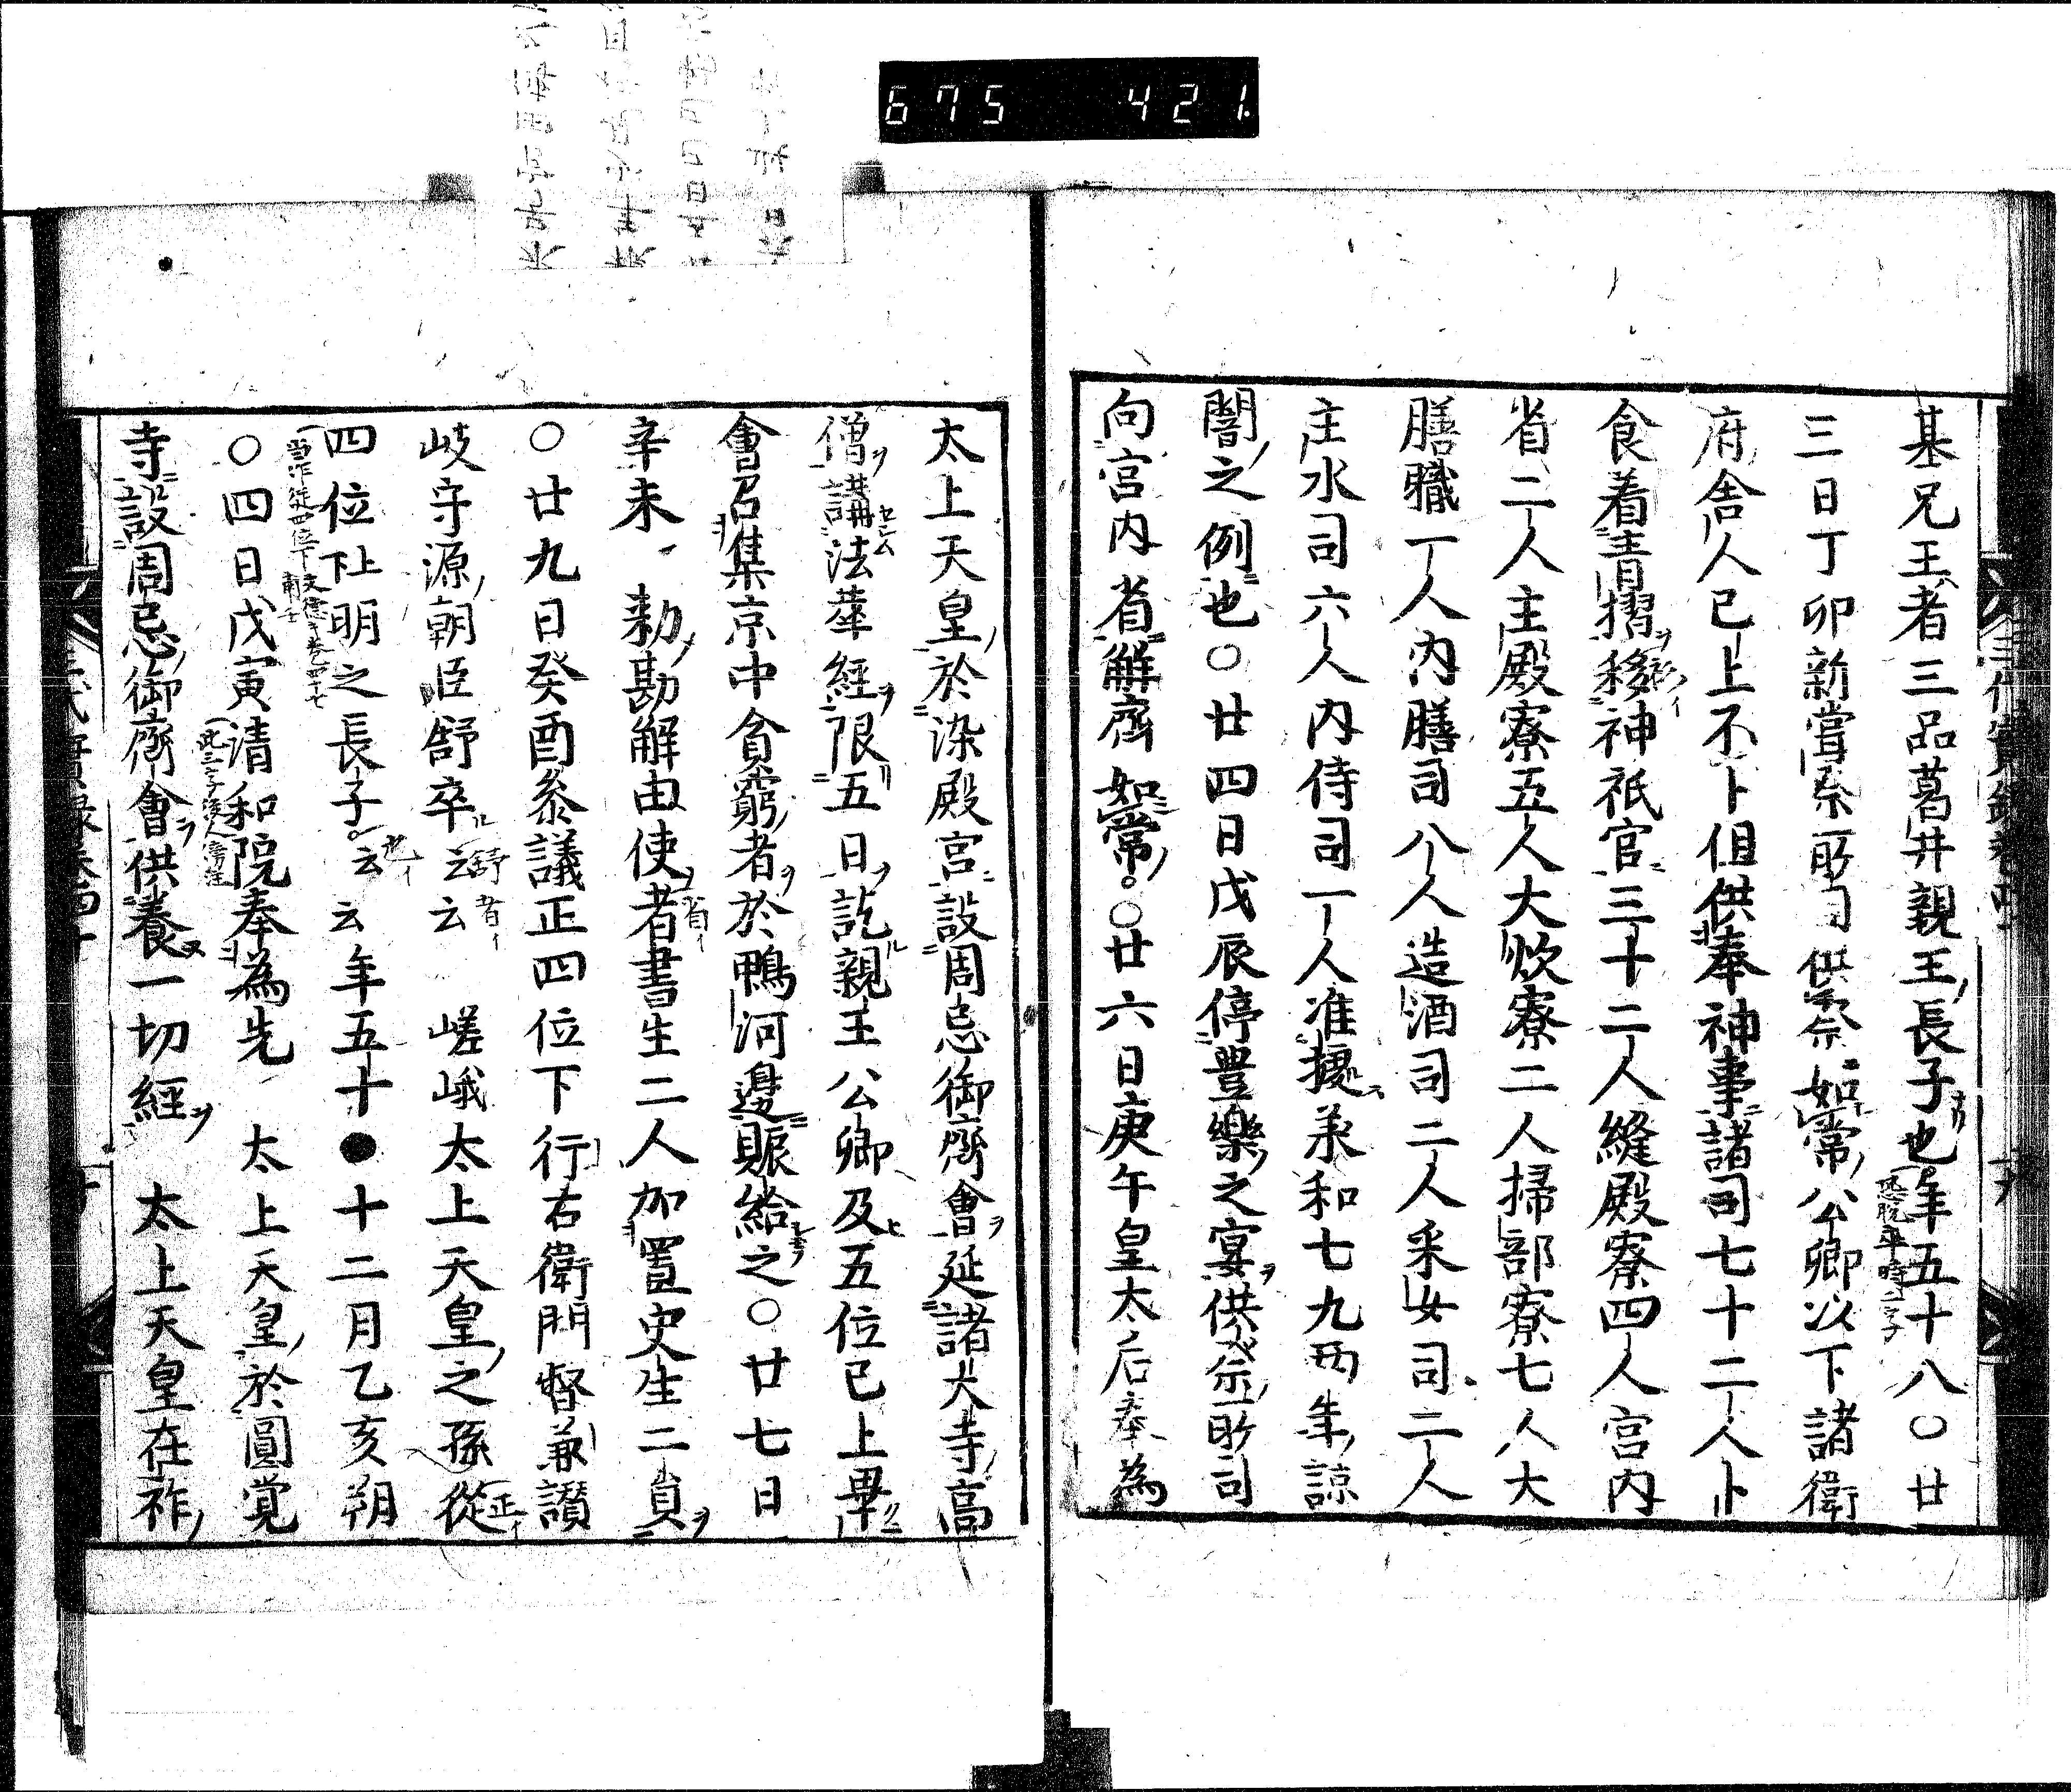 675 421
基兄王者三品葛井親王長子也年五十八○廿
三日丁卯新嘗祭所司供祭如常公卿以下諸衛
府舎人已上不卜但供奉神事諸司七十二人卜
食着青摺移神祇官三十二人縫殿寮四人宮内
省二人主殿寮五人大炊寮二人掃部寮七人大
膳職一人内膳司八人造酒司二人采女司二人
主水司六人内侍司一人准據承和七九両年諒
闇之例也○廿四日戊辰停豊樂之宴供祭所司
向宮内省解齋如常○廿六日庚午皇太后奉為
太上天皇於染殿宮設周忌御齋會延諸大寺高
僧講法華經限五日訖親王公卿及五位已上畢
會召集京中貧窮者於鴨河邊賑給之○廿七日
辛未勅勘解由使者書生二人加置史生二員
○廿九日癸酉参議正四位下行右衛門督兼讃
岐守源朝臣舒卒云云 嵯峨太上天皇之孫從
四位上明之長子云云年五十●十二月乙亥朔
○四日戊寅清和院奉為先 太上天皇於圓覚
寺設周忌御齋會供養一切經 太上天皇在祚